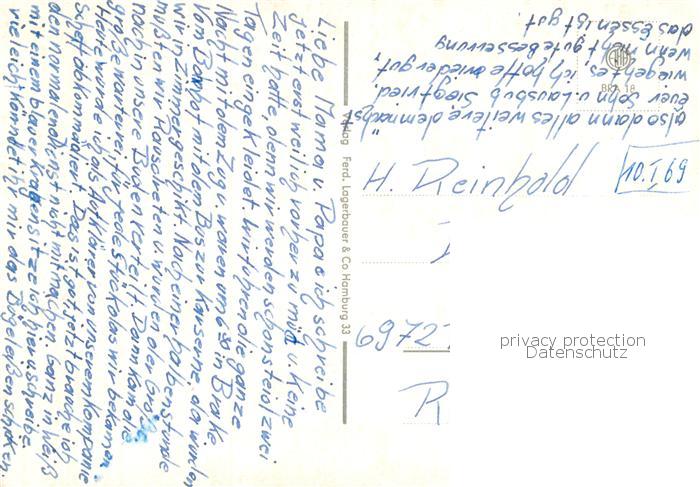 Liebe Mama u. Papa ich schreibe
jetzt erst weil ich vorher zu müd u. keine
Zeit hatte, denn wir werden schon seit zwei
Tagen eingekleidet. Wir fuhren die ganze
Nacht mit dem Zug u. waren um 6 30 in Brake
Vom Bahnhof mit dem Bus zur Kaserne, da wurden
wir in Zimmer geschikt. Nach einer halben Stunde
mußten wir Raustreten u. wurden der Größe
noch in unsere Buden verteilt. Dann kam die
große Warterei für jedes Stück das wir bekamen.
Heute wurde ich als Aufklärer von unserem Kompanie
Scheff abkommandiert. Das ist gut, jetzt brauche ich
den normalen Dienst nicht mitmachen. Ganz in Weiß
mit einem blauen Kragen sitze ich hier u. schreibe
vieleicht könnt ihr mir das Bügeleißen schiken.
also dann alles weitere demnächst
euer Sohn u. Lausbub Siegfried.
wie geht es, ich hoffe wieder gut,
wenn nicht gute besserung
das Essen ist gut
Verlag Ferd. Lagerbauer & Co Hamburg 33
BRA 18
H. Reinhold
10.I.69
6972
R
privacy protection
Datenschutz